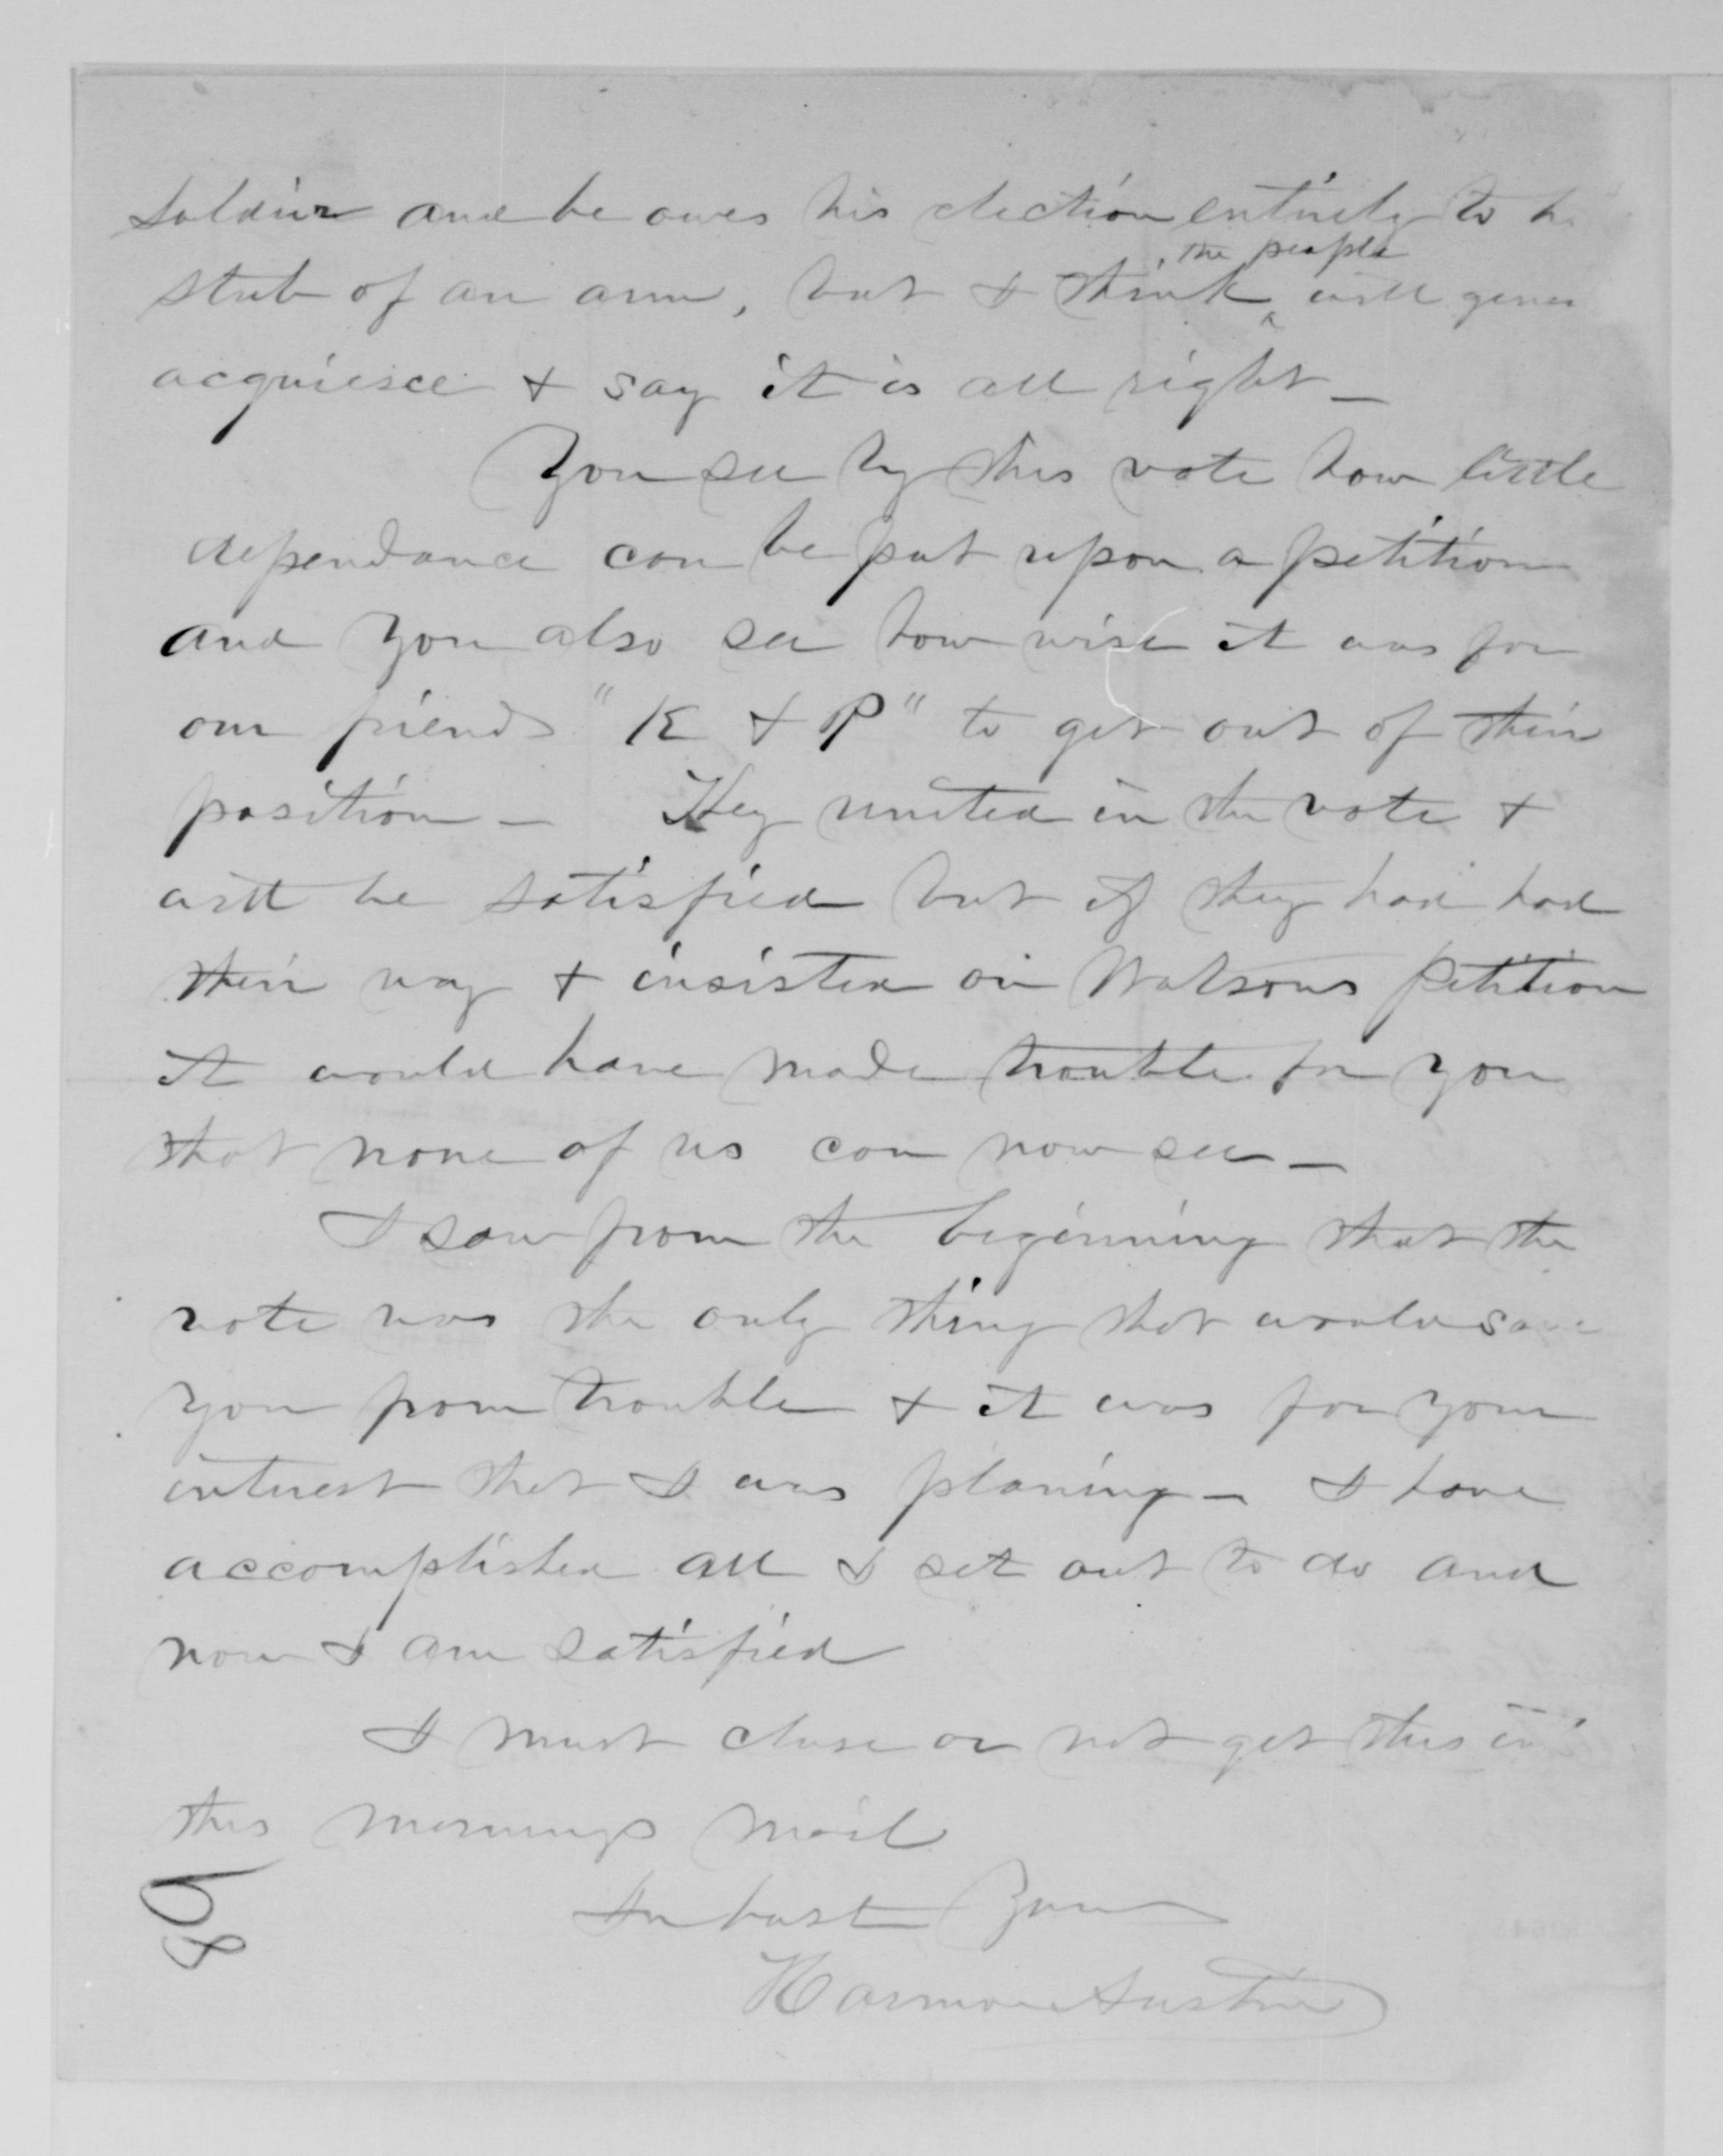 soldier and he owes his election entirely to
stub of an arm, but I think the people will
acquiesce & say it is all right _
You see by this vote how little
dependance can be put upon a petition
and you also see how wise it was for
our friends "K & P" to get out of their
position _ They united in the vote &
will be satisfied but if they had had
their way & insisted on Watsons petition
it would have made trouble for you
that none of us can now see _
I saw from the beginning that the
vote was the only thing that would save
you from trouble & it was for your
interest that I was planing _ I have
accomplished all I set out to do and
now I am satisfied
I must close or not get this in
this mornings mail
In haste Yours
Harmon Austin